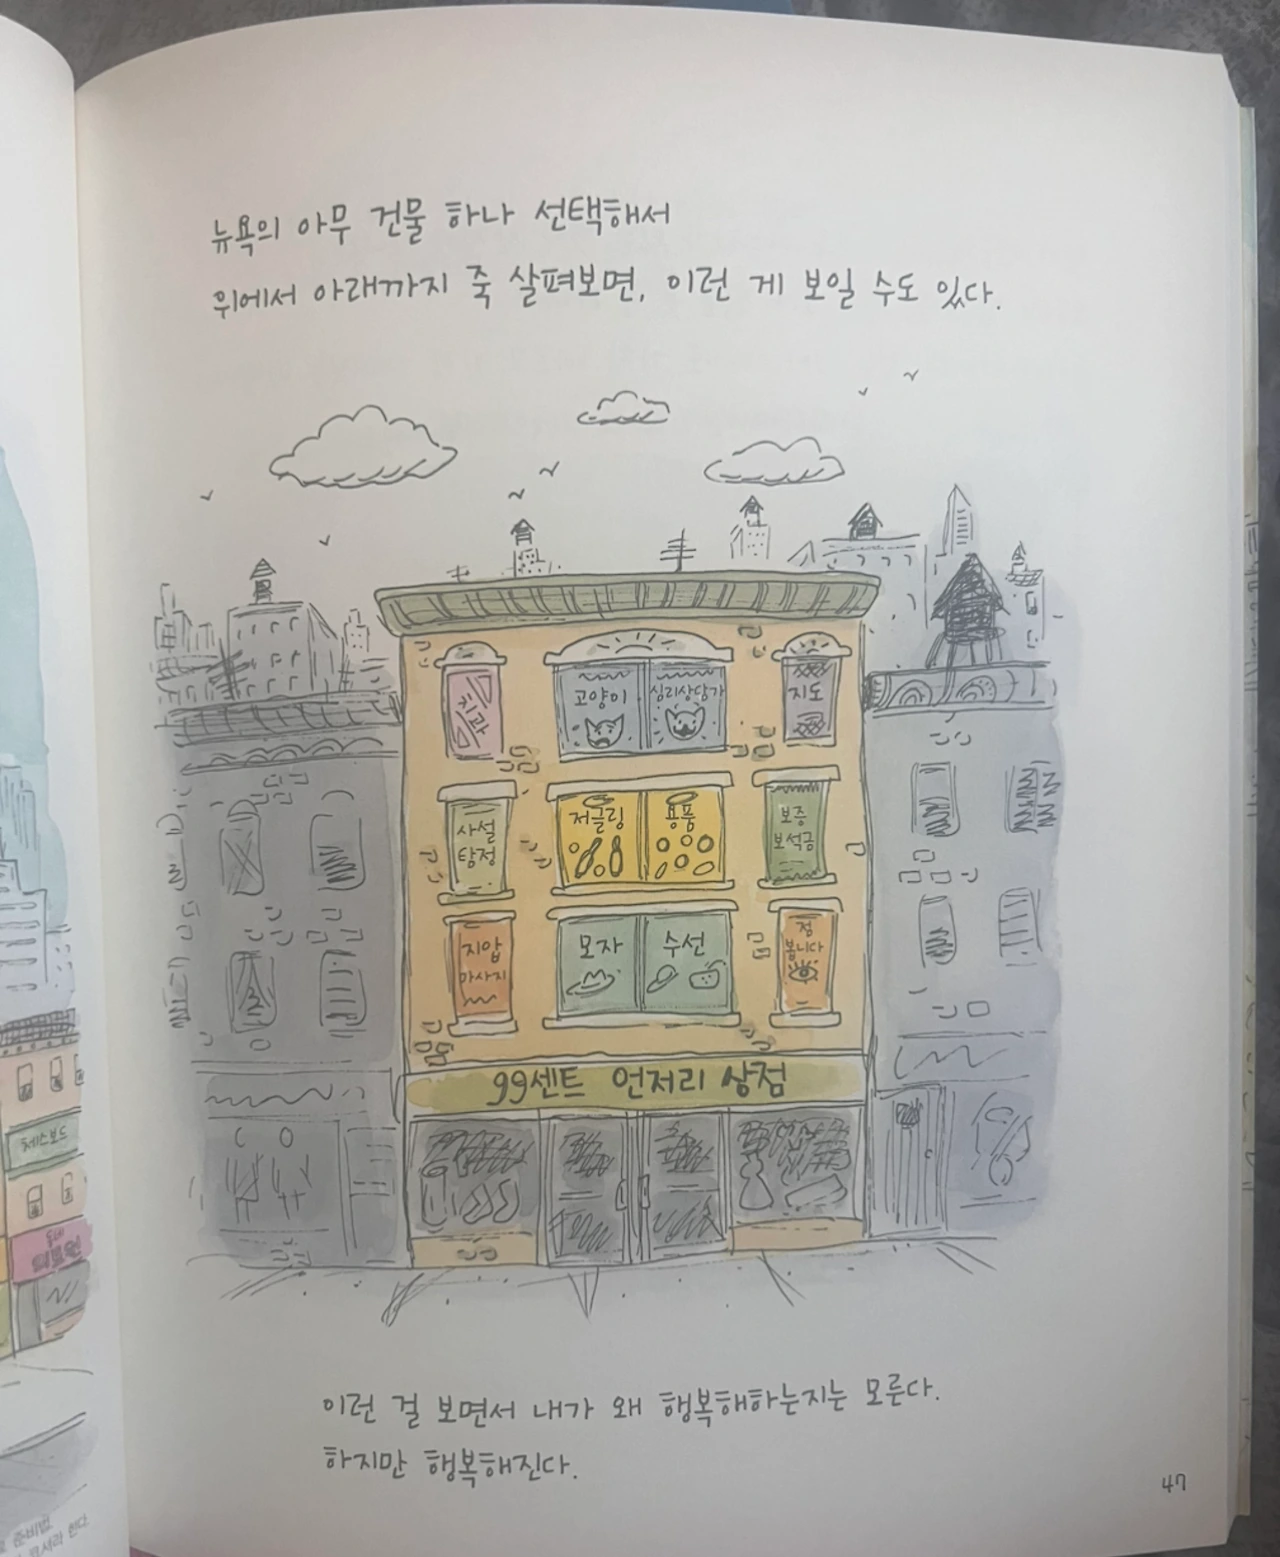 뉴욕의 아무 건물 하나 선택해서
위에서 아래까지 죽 살펴보면, 이런 게 보일 수도 있다.
치과
고양이 심리상담가
지도
사설
탐정
저글링 용품
보증
보석금
지압
마사지
모자 수선
점
봅니다
99센트 언저리 상점
체스보드
이런 걸 보면서 내가 왜 행복해하는지는 모른다.
하지만 행복해진다.
47
준비법
한다.